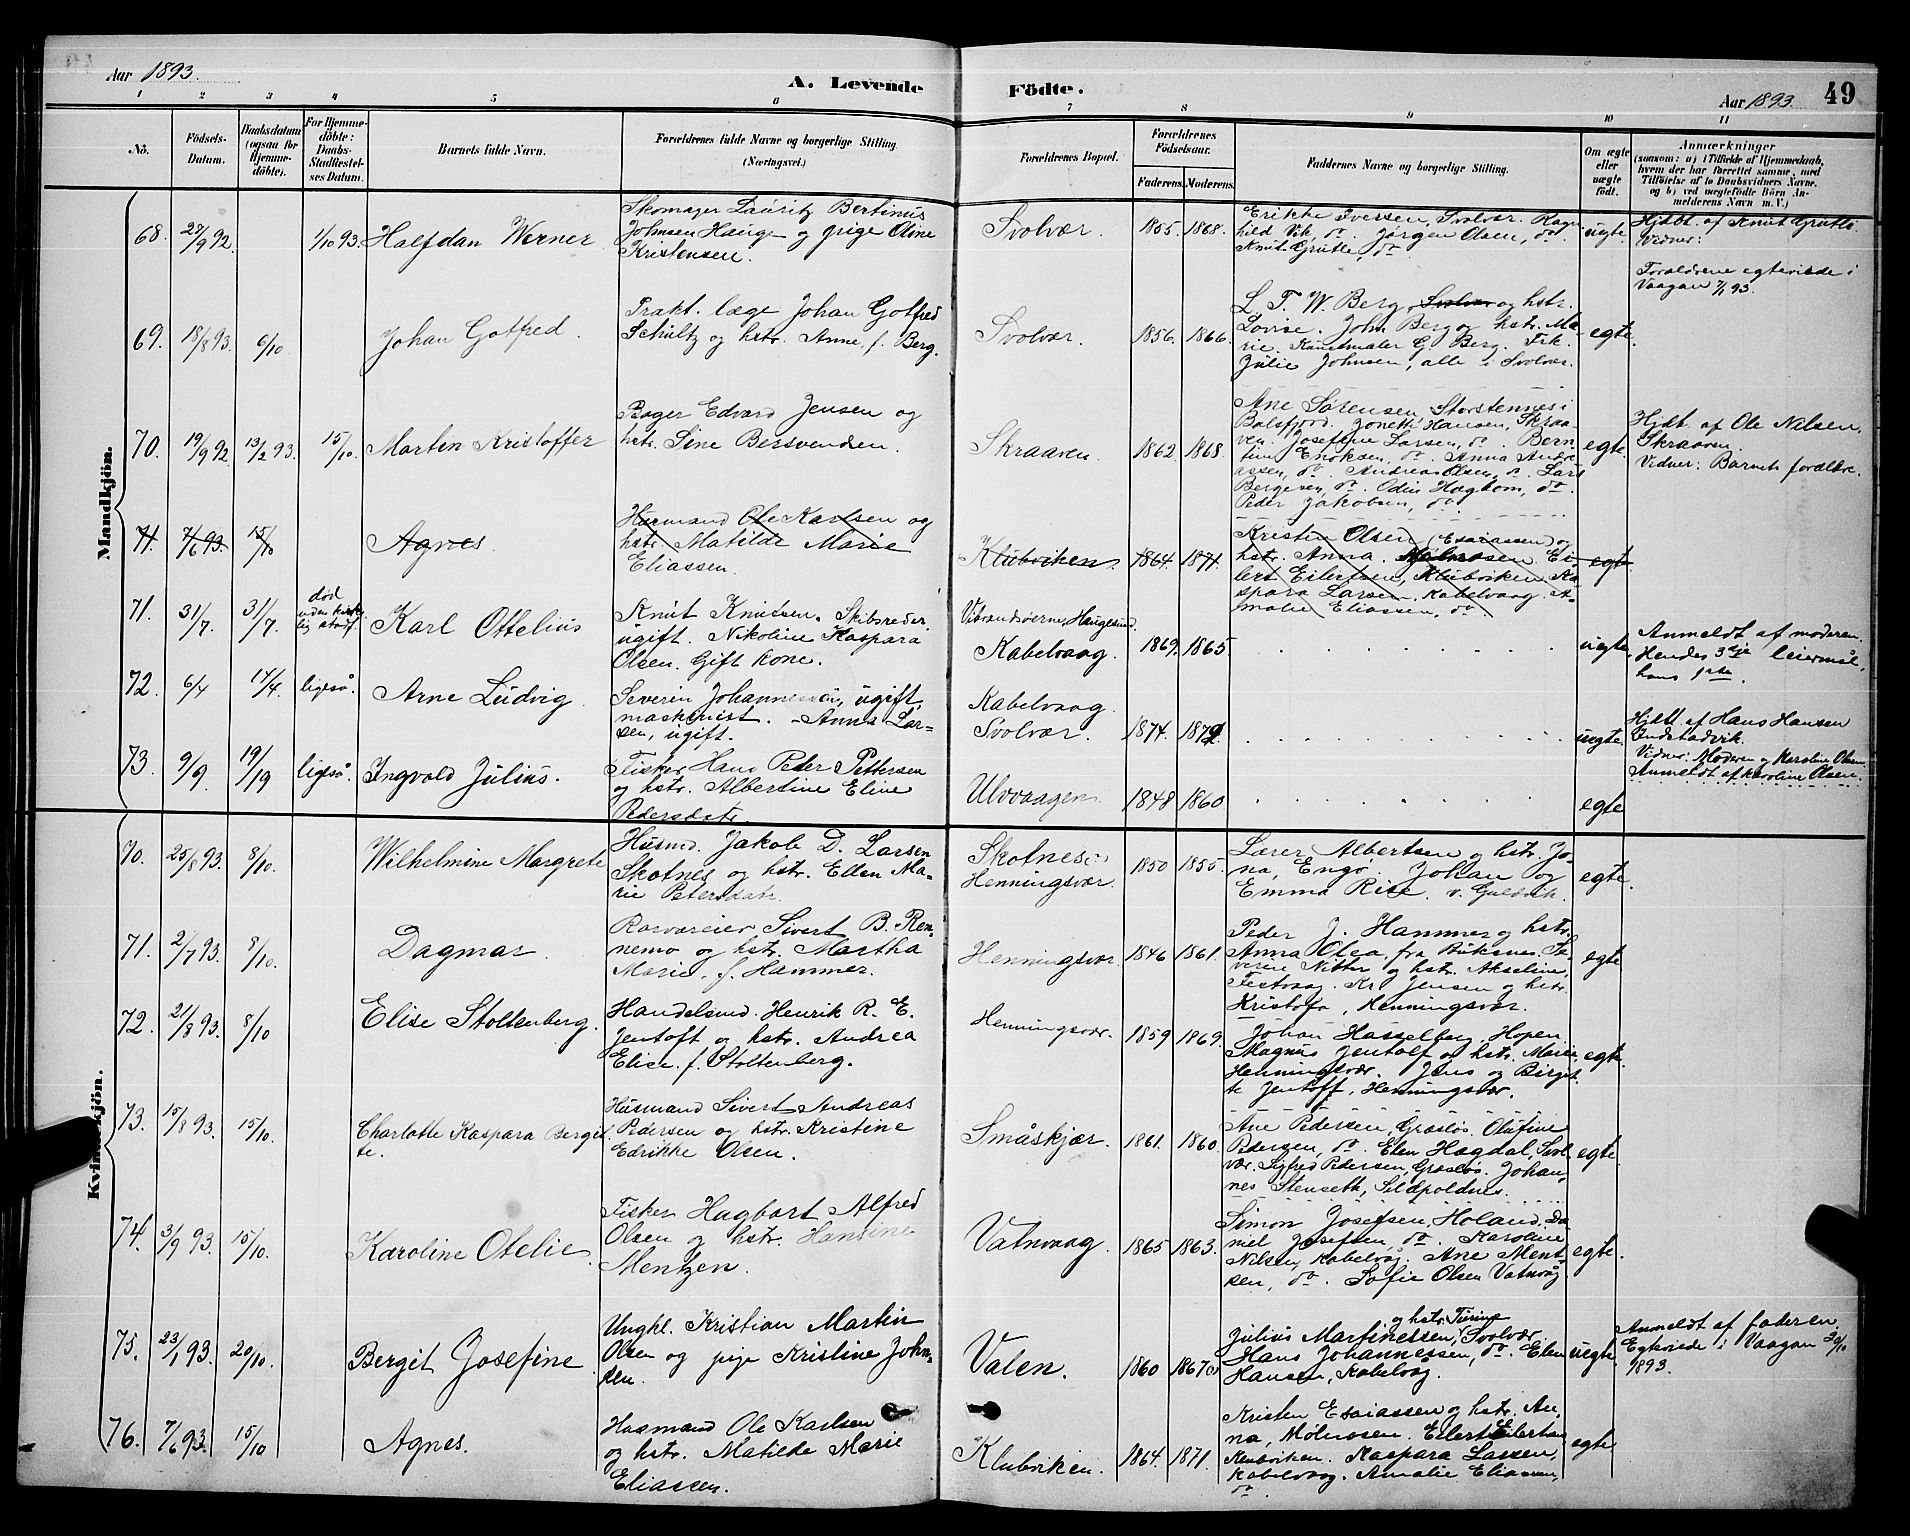 Aar 1893.
A. Levende Födte.
Aar 1893. 49
1 2 3 4 5 6 7 8 9 10 11
No. Födsels-Datum. Daabsdatum (ogsaa for Hjemmedöbte). For Hjemmedöbte: Daabs-Stadfestelses Datum. Barnets fulde Navn. Forældrenes fulde Navne og borgerlige Stilling. (Næringsvei.) Forældrenes Bopæl. Forældrenes Födselsaar. Faderens. Moderens. Faddernes Navne og borgerlige Stilling. Om ægte eller uægte födt. Anmærkninger (saasom: a) i Tilfælde af Hjemmedaab, hvem der har forrettet samme, med Tilföielse af to Daabsvidners Navne, og b) ved uægtefödte Börn Anmelderens Navn m. V.)
Mandkjön.
68. 29/9 92. 1/10 93. Halfdan Werner.
Skomager Lauritz Bertinus
Johnsen Hauge og pige Oline
Kristensen.
Svolvær. 1855. 1868.
Erikke Iversen, Svolvær. Ragn
hild Vik, do. Jørgen Olsen, do.
Knut Grutle, do
uegte.
Hjdbt. af Knut Grutle.
Vidner:
Forældrene egteviede i
Vaagan 7/1 93.
69. 18/8 93. 6/10 Johan Gotfred.
Prakt. læge Johan Gotfred
Schultz og hstr. Anne, f. Berg.
Svolvær. 1856. 1866.
L. T. W. Berg, Svolvær og hstr.
Lovise. John Berg og hstr. Ma-
rie. Kunstmaler G. Berg. Frk.
Julie Johnsen, alle i Svolvær.
egte.
70. 19/9 92. 13/2 93. 15/10. Martin Kristoffer
Bager Edvard Jensen og
hstr. Sine Bersvenden.
Skraaven. 1862. 1868.
Ane Sørensen, Storstennes i
Balsfjord. Jonette Hansen, Skraa-
ven. Josefine Larsen, do. Bern-
tine Enoksen, do. Anna Andre-
assen, do. Andreas Olsen, do. Lars
Bergersen, do. Odin Hagbom, do.
Peder Jakobsen, do.
egte.
Hjdt. af Ole Nilsen,
Skraaven.
Vidner: Barnets forældre.
71. 7/6 93. 15/10 Agnes.
Husmand Ole Karlsen og
hstr. Matilde Marie
Eliassen.
Klubviken. 1864. 1871.
Kristen Olsen (Esaiassen) og
hstr. Anna Molnosen. Ei-
lert Eilertsen, Klubviken. Ka-
spara Larsen, Kabelvaag. A-
malie Eliassen, do
egte
71. 31/7. 31/7. død uden kirke-lig atnf. Karl Ottelius
Knut Knutsen. Skibsreder.
ugift. Nikoline Kaspara
Olsen. Gift kone.
Vibrandsøerne, Haugesund.
Kabelvaag. 1869. 1865
uegte.
Anmeldt af moderen.
Hendes 3die leiermål,
hans 1ste.
72. 6/4 17/4. ligeså. Arne Ludvig
Severin Johannessen, ugift,
maskinist. - Anna Lar-
sen, ugift.
Kabelvaag.
Svolvær. 1874. 1879.
uegte.
Hjdt. af Hans Hansen
Vidner: Moderen og Karoline Olsen.
Anmeldt af Karoline Olsen.
73. 9/9. 19/19 ligeså. Ingvald Julius.
Fisker Hans Peder Pettersen
og hstr. Albertine Eline
Pedersdatr.
Ulvvaagen. 1848 1860
egte
Kvindekjön.
70. 25/8 93. 8/10. Wilhelmine Margrete
Husmd. Jakob D. Larsen
Skotnes og hstr. Ellen Ma-
rie Petersdatr.
Skotnes
Henningsvær. 1850 1855.
Lærer Albertsen og hstr. Jo-
na, Engø. Johan og
Emma Rise v. Guldvik.
egte.
71. 2/7 93. 8/10. Dagmar.
Rorværeier Sivert B. Ren-
nemo og hstr. Martha
Marie, f. Hammer.
Henningsvær. 1846 1861.
Peder J. Hammer og hstr.
Anna Olea fra Buksnes. Se-
verin Nitter og hstr. Akseline,
Festvaag. Kr. Jensen og hstr.
Kristofa, Henningsvær.
egte.
72. 21/8 93. 8/10 Elise Stoltenberg.
Handelsmd. Henrik R. E.
Jentoft og hstr. Andrea
Elise f. Stoltenberg.
Henningsvær. 1859 1869.
Johan Hasselberg, Hopen.
Magnus Jentoff og hstr. Marie,
Henningsvær. Jens og Birgit-
te Jentoff, Henningsvær.
egte.
73. 15/8 93. 15/10. Charlotte Kaspara Bergit-
te.
Husmand Sivert Andreas
Pedersen og hstr. Kristine
Edrikke Olsen.
Småskjær. 1861. 1860.
Ane Pedersen, Grasløs. Olufine
Pedersen, do. Elen Hagdal, Svol-
vær. Sigfred Pedersen, Grasløs. Johan-
nes Stenseth, Sildpoldnes.
egte.
74. 3/9 93. 15/10. Karoline Otelie.
Fisker Hagbart Alfred
Olsen og hstr. Hansine
Mentzen.
Vatnvaag. 1865 1863.
Simon Josefsen, Holand. Da-
niel Josefsen, do. Karoline
Nilsen, Kabelvåg. Ane Ment-
sen, do. Sofie Olsen Vatnvåg.
egte.
75. 23/1 93. 20/10. Bergit Josefine
Ungkl. Kristian Martin
Olsen og pige Kristine John-
sen.
Valen. 1860 1867
og hstr. Turine
Julius Martinessen, Svolvær.
Hans Johannessen, do. Elen
Hansen, Kabelvåg.
uegte.
Anmeldt af faderen.
Egteviede i Vaagan 20/10
1893.
76. 7/6 93. 15/10 Agnes.
Husmand Ole Karlsen
og hstr. Matilde Marie
Eliassen.
Klubviken. 1864. 1871.
Kristen Esaiassen og hstr. An-
na, Molnosen. Eilert Eilertsen
Klubviken. Kaspara Larsen,
Kabelvaag. Amalie Eliassen,
do.
egte